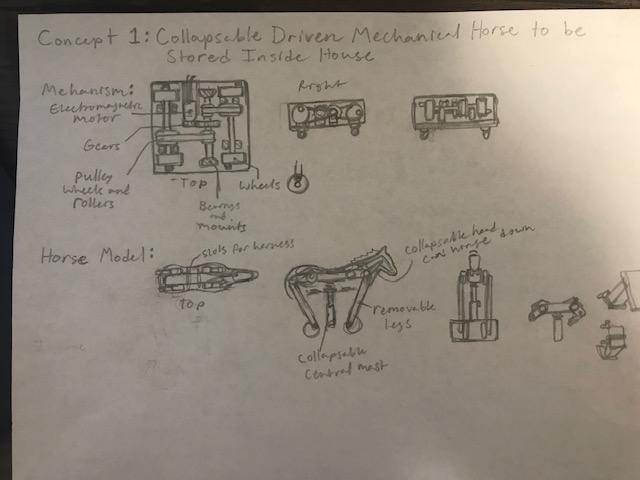 Concept 1: Collapsable Driven Mechanical Horse to be
Stored Inside House
Mehanism:
Electromagnetic
motor
Gears
Pulley
wheels and
rollers
Top
Wheels
Bearings
and
mounts
Right
Horse Model:
slots for harness
Top
collapsable head
down
removable
legs
Collapsable
Central mast